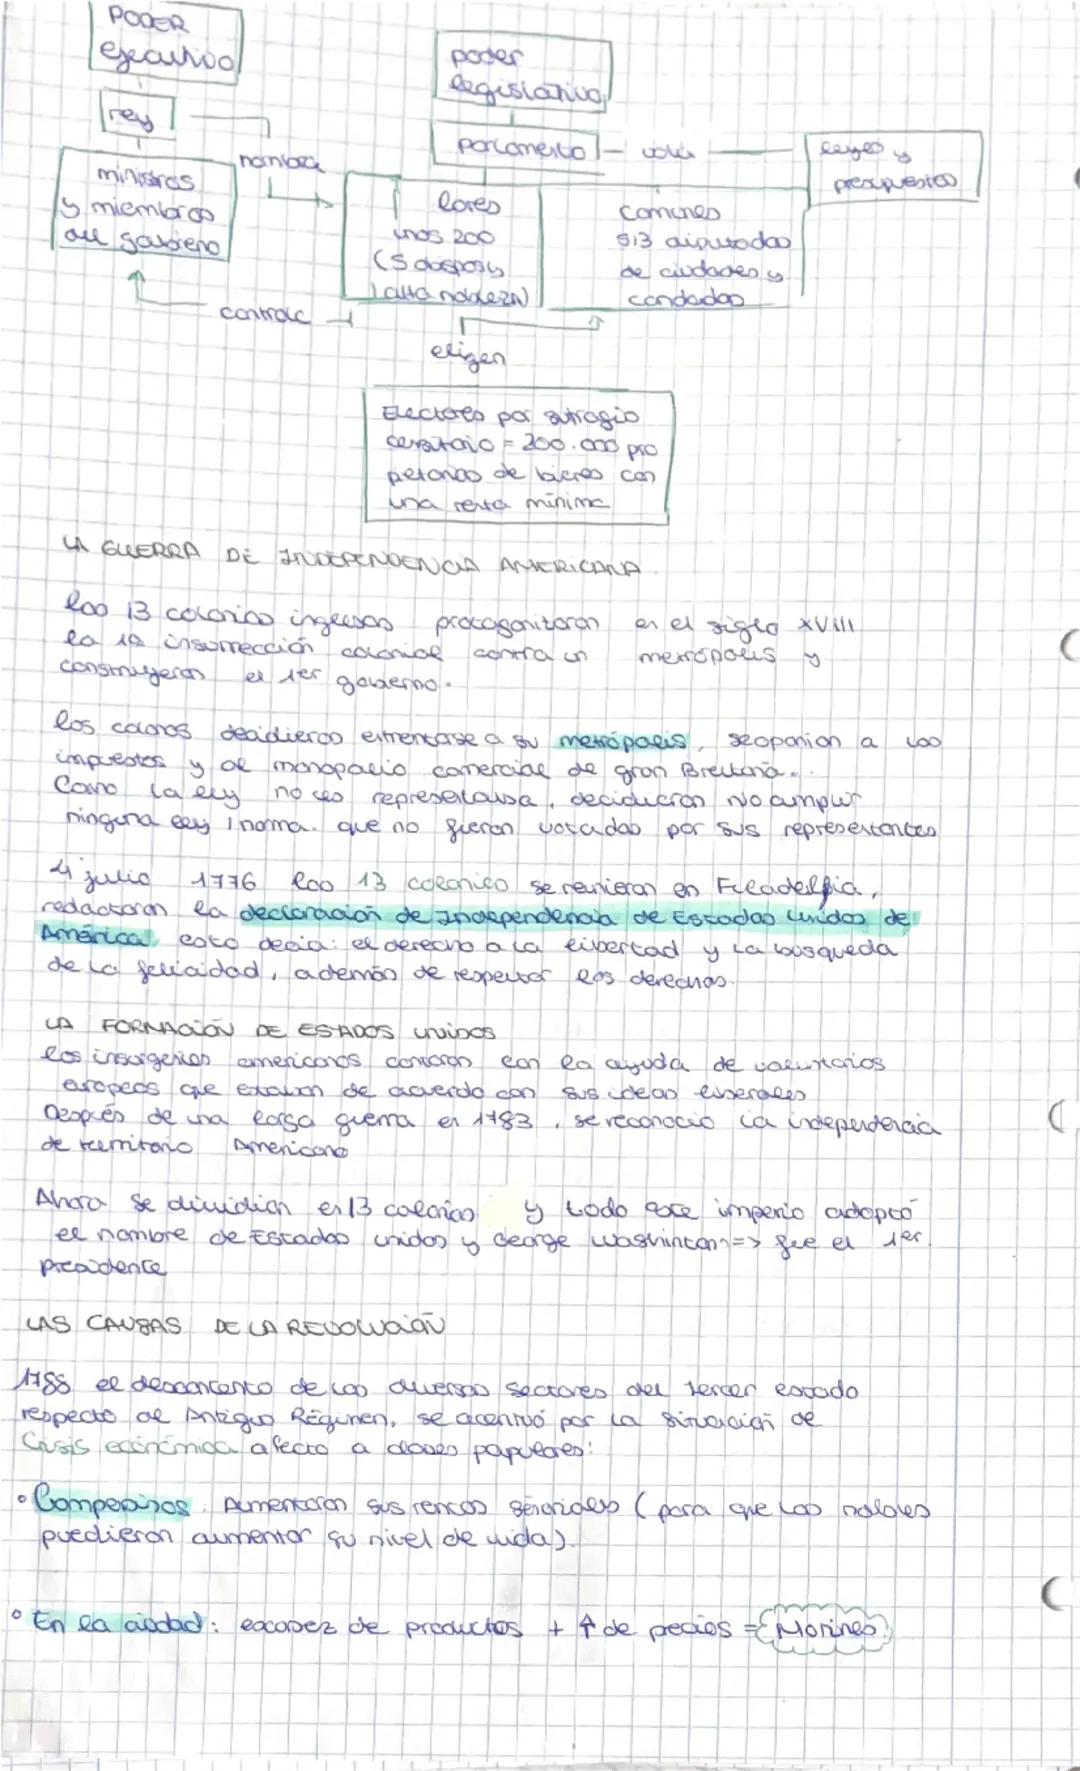 PODER
ejecutivo
rey
ministros
y miembros
del gobierno
nombra
controla
poder
legislativo
parlamento
vota
leyes y
presupuestos
lores
unos 200
(5 obispos y
alta nobleza)
comunes
513 diputados
de ciudades y
condados
eligen
Electores por sufragio
censitario = 200.000 pro
petarios de bienes con
una renta mínima
LA GUERRA DE INDEPENDENCIA AMERICANA
los 13 colonias inglesas protagonizaron en el siglo XVIII
la 1ª insurrección colonial contra un metrópolis y
construyeron el 1er gobierno.
los colonos decidieron enfrentarse a su metrópolis, se oponian a los
impuestos y al monopolio comercial de gran Bretaña.
Como la ley no les representaba, decidieron No cumplir
ninguna ley / norma. que no fueron votadas por sus representantes
4 julio 1776 los 13 colonias se reunieron en Filadelfia,
redactaron la declaración de Independencia de Estados Unidos de
América, esto decia: el derecho a la libertad y la busqueda
de la felicidad, además de respetar los derechos.
LA FORMACIÓN DE ESTADOS UNIDOS
los insurgentes americanos contaron con la ayuda de voluntarios
europeos que estaban de acuerdo con sus ideas liberales
Después de una larga guerra en 1783, se reconocio la independencia
de territorio Americano
Ahora se dividian en 13 colonias y todo este imperio adoptó
el nombre de Estados unidos y George Washinton => fue el 1er.
presidente
LAS CAUSAS DE LA REVOLUCIÓN
1788 el descontento de los diversos sectores del tercer estado
respecto al Antiguo Régimen, se acentuó por la situación de
Crisis económica afecto a clases populares:
• Campesinos. Aumentaron sus rentas señoriales (para que los nobles
puedieron aumentar su nivel de vida).
• En la ciudad: escasez de productos + ↑ de pecios = Motines